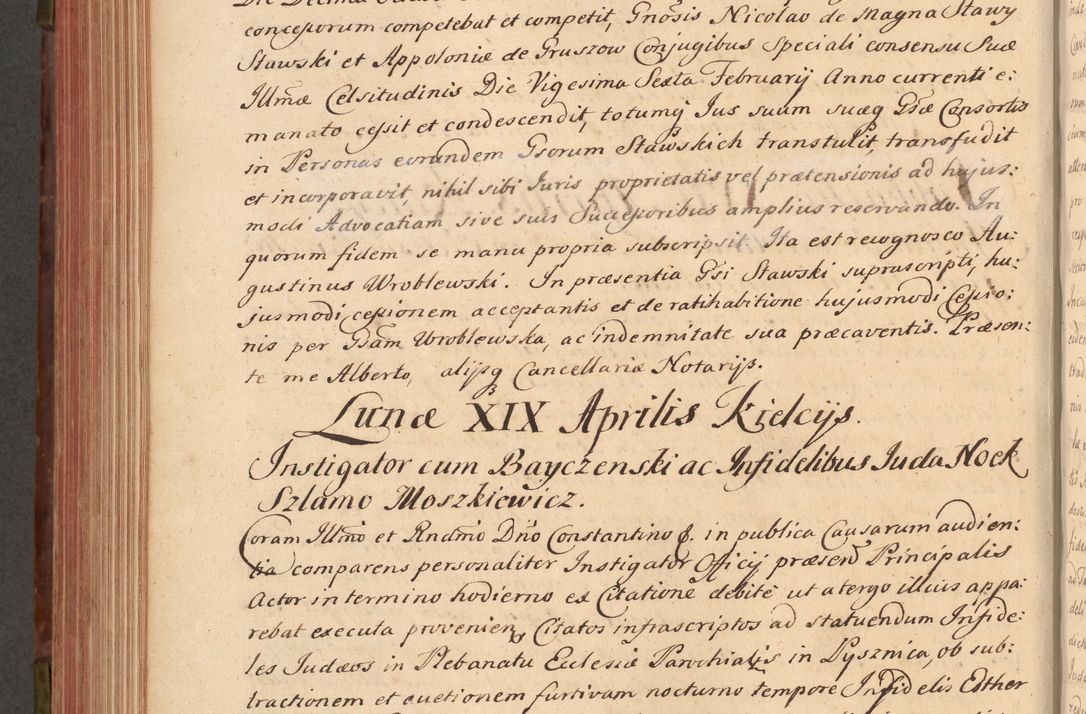 concessorum competebat et competit, Gnosis Nicolao de Magna Stawy
Stawski et Appoloniæ de Gruszow Conjugibus speciali consensu Suæ
Illmæ Celsitudinis Die Vigesima Sexta Februarij Anno currenti e:
manato cessit et condescendit, totumq Jus suum suæq Gsæ Consortis
in Personas eorundem Gsorum Stawskich transtulit, transfudit
et incorporavit, nihil sibi Juris proprietatis vel prætensionis ad hujus:
modi Advocatiam sive suis Successoribus amplius reservando. In
quorum fidem se manu propria subscripsit. Ita est recognosco Au:
gustinus Wroblewski. In præsentia Gsi Stawski suprascripti, hu:
jusmodi cessionem acceptantis et de ratihabitione hujusmodi Cessio:
nis per Gsam Wroblewska, ac indemnitate sua præcaventis. Præsen:
te me Alberto, alijsq Cancellariæ Notarijs.
Lunæ XIX Aprilis Kielcijs.
Instigator cum Bayczenski ac Infidelibus Juda Nock
Szlamo Moszkiewicz.
Coram Illmo et Rndmo Dno Constantino &. in publica Causarum audien:
tia comparens personaliter Instigator Officij præsen Principalis
Actor in termino hodierno ex Citatione debite ut a tergo illius appa
rebat executa provenien, Citatos infrascriptos ad statuendum Infide:
les Judæos in Plebanatu Ecclesiæ Parochialis in Pysznica, ob sub:
tractionem et avectionem furtivam nocturno tempore Infidelis Esther